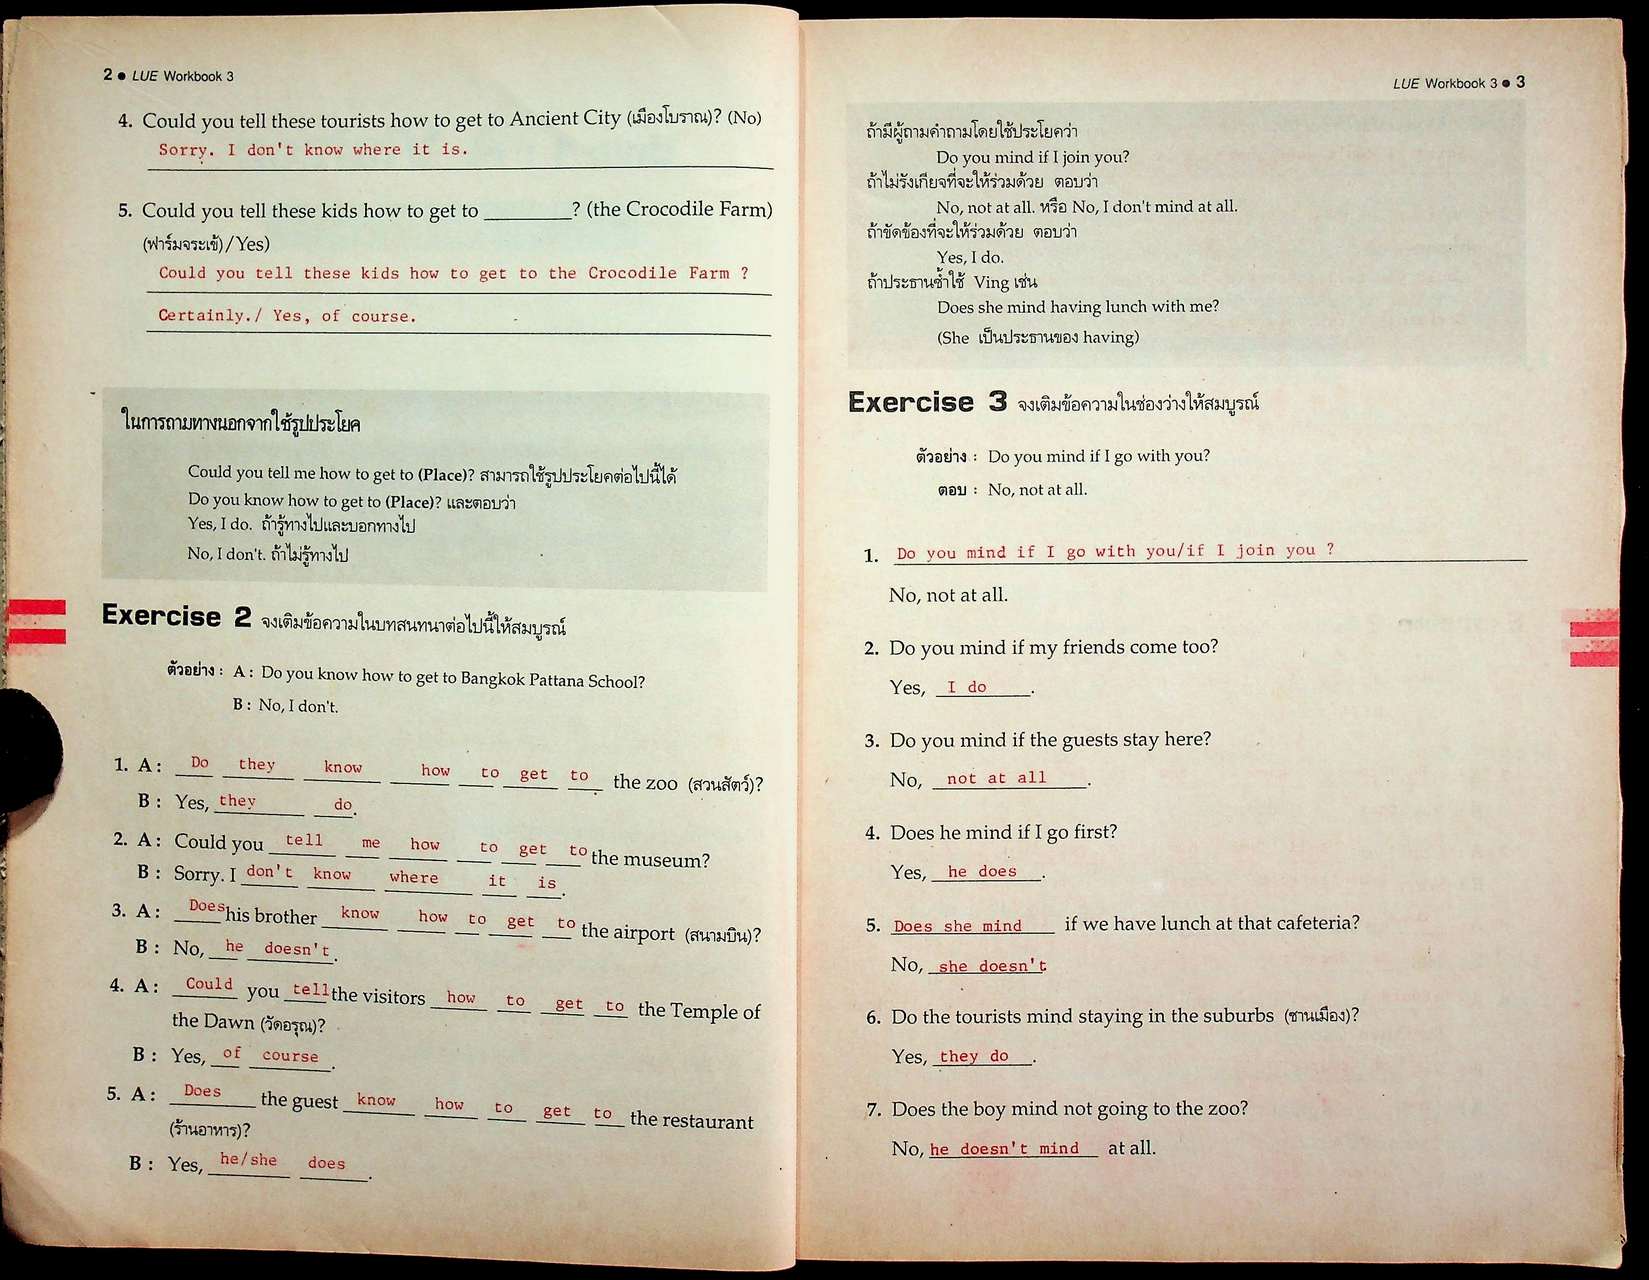 2 ● LUE Workbook 3
4. Could you tell these tourists how to get to Ancient City (เมืองโบราณ)? (No)
Sorry. I don't know where it is.
5. Could you tell these kids how to get to ________? (the Crocodile Farm)
(ฟาร์มจระเข้)/Yes)
Could you tell these kids how to get to the Crocodile Farm ?
Certainly./ Yes, of course.
ในการถามทางนอกจากใช้รูปประโยค
Could you tell me how to get to (Place)? สามารถใช้รูปประโยคต่อไปนี้ได้
Do you know how to get to (Place)? และตอบว่า
Yes, I do. ถ้ารู้ทางไปและบอกทางไป
No, I don't. ถ้าไม่รู้ทางไป
Exercise 2 จงเติมข้อความในบทสนทนาต่อไปนี้ให้สมบูรณ์
ตัวอย่าง : A : Do you know how to get to Bangkok Pattana School?
B : No, I don't.
1. A : Do they know how to get to the zoo (สวนสัตว์)?
B : Yes, they do.
2. A : Could you tell me how to get to the museum?
B : Sorry. I don't know where it is.
3. A : Does his brother know how to get to the airport (สนามบิน)?
B : No, he doesn't.
4. A : Could you tell the visitors how to get to the Temple of
the Dawn (วัดอรุณ)?
B : Yes, of course.
5. A : Does the guest know how to get to the restaurant
(ร้านอาหาร)?
B : Yes, he/she does.
LUE Workbook 3 ● 3
ถ้ามีผู้ถามคำถามโดยใช้ประโยคว่า
Do you mind if I join you?
ถ้าไม่รังเกียจที่จะให้ร่วมด้วย ตอบว่า
No, not at all. หรือ No, I don't mind at all.
ถ้าขัดข้องที่จะให้ร่วมด้วย ตอบว่า
Yes, I do.
ถ้าประธานซ้ำใช้ Ving เช่น
Does she mind having lunch with me?
(She เป็นประธานของ having)
Exercise 3 จงเติมข้อความในช่องว่างให้สมบูรณ์
ตัวอย่าง : Do you mind if I go with you?
ตอบ : No, not at all.
1. Do you mind if I go with you/if I join you ?
No, not at all.
2. Do you mind if my friends come too?
Yes, I do.
3. Do you mind if the guests stay here?
No, not at all.
4. Does he mind if I go first?
Yes, he does.
5. Does she mind if we have lunch at that cafeteria?
No, she doesn't
6. Do the tourists mind staying in the suburbs (ชานเมือง)?
Yes, they do.
7. Does the boy mind not going to the zoo?
No, he doesn't mind at all.